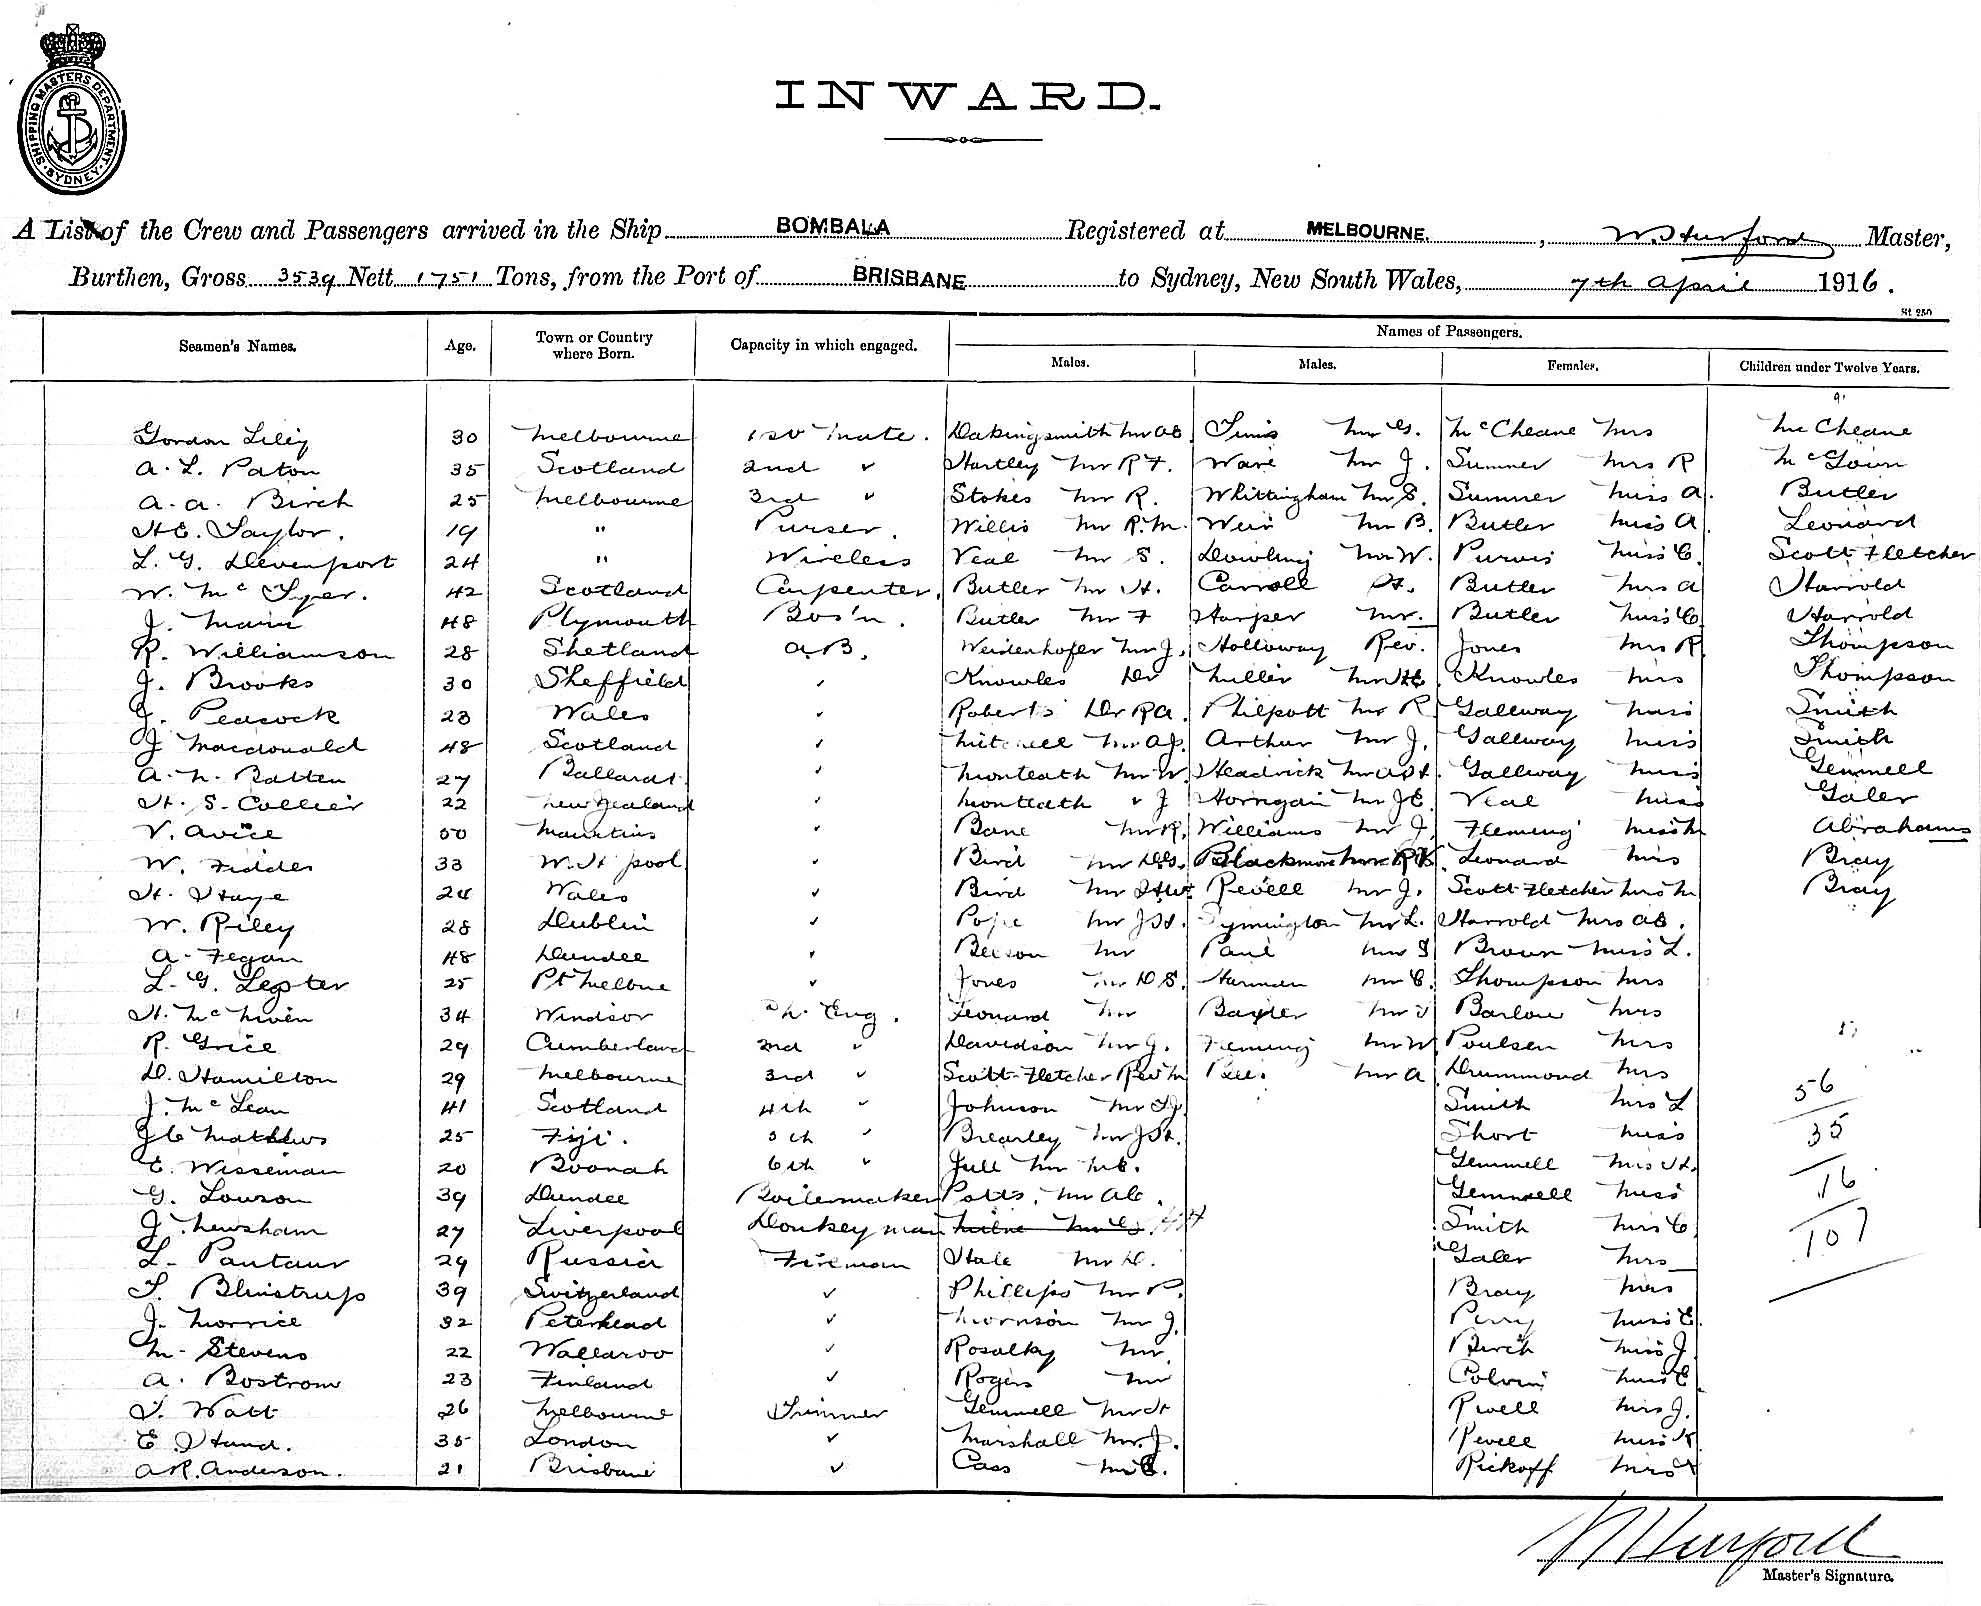 SHIPPING MASTERS DEPARTMENT SYDNEY
INWARD.
A List of the Crew and Passengers arrived in the Ship BOMBALA Registered at MELBOURNE, W. Hurford Master,
Burthen, Gross 3539 Nett 1751 Tons, from the Port of BRISBANE to Sydney, New South Wales, 7th April 1916.
St 250
Names of Passengers.
Seamen's Names. Age. Town or Country where Born. Capacity in which engaged. Males. Males. Females. Children under Twelve Years.
Gordon Lilly 30 Melbourne 1st Mate. Dakingsmith Mr AE Sims Mr G. McCheane Mrs McCheane
A. L. Paton 35 Scotland 2nd " Hartley Mr R F. Ware Mr J. Sumner Mrs R
A. A. Birch 25 Melbourne 3rd " Stokes Mr R. Whittingham Mr S. Sumner Miss A. Butler
H E. Taylor. 19 " Purser. Willis Mr R.M. Weir Mr B. Butler Miss A Leonard
L. G. Devenport 24 " Wireless Veal Mr S. Dowling Mr W. Purvis Miss C. Scott-Fletcher
W. Mc 42 Scotland Carpenter. Butler Mr H. Carroll H. Butler Mrs A Harrold
J. Main 48 Plymouth Bos'n. Butler Mr F Harper Mr. Butler Miss C Harrold
R. Williamson 28 Shetland A.B. Weidenhofer Mr J. Holloway Rev. Jones Mrs R Thompson
J. Brooks 30 Sheffield ✓ Knowles Dr Miller Mr Knowles Mrs Thompson
J. Peacock 23 Wales ✓ Roberts Dr RA. Philpott Mr R Galleway Miss Smith
J Macdonald 48 Scotland ✓ Mitchell Mr A.J. Arthur Mr J. Galleway Miss Smith
A. N. Batten 27 Ballarat. ✓ Monteath Mr W. Headrick Mr Galleway Miss Gemmell
H. S. Collier 22 New Zealand ✓ Monteath " J Horrigan Mr J E. Veal Miss Galer
V. Avice 50 Mauritius ✓ Bane Mr R. Williams Mr J. Fleming Miss M Abrahams
W. Fiddes 33 W. H' pool ✓ Bird Mr Blackmore Mr R Leonard Mrs Bray
H. Haye 24 Wales ✓ Bird Mr Revell Mr J. Scott-Fletcher Mrs M Bray
W. Riley 28 Dublin ✓ Pope Mr J H. Symington Mr L. Harrold Mrs AE.
A. Fegan 48 Dundee ✓ Beeson Mr Paul Mr S Brown Miss L.
L. G. Lester 25 Pt Melbne ✓ Jones Mr D S. Harman Mr C. Thompson Mrs
H. McNiven 34 Windsor Ch. Eng. Leonard Mr Baxter Mr Barlow Mrs
R. Grice 29 Cumberland 2nd " Davidson Mr G. Fleming Mr W Poulsen Mrs
D. Hamilton 29 Melbourne 3rd " Scott-Fletcher Rev M Mr A Drummond Mrs
J. McLean 41 Scotland 4th " Johnson Mr Smith Mrs L 56
J C Mathews 25 Fiji. 5th " Brearley Mr J H. Short Miss 35
E. Wisseman 20 Boonah 6th " Jull Mr Gemmell Mrs H. 16
G. Lowson 39 Dundee Boilermaker Potts. Mr AE. Gemmell Miss 107
J. Newsham 27 Liverpool Donkeyman Milne Mr G. Smith Mrs C
L. Pantaur 29 Russia Fireman Hale Mr D. Galer Mrs
T. Blinstrup 39 Switzerland ✓ Phillips Mr P. Bray Mrs
J. Morrice 32 Peterhead ✓ Mornson Mr J. Perry Miss E.
M. Stevens 22 Wallaroo ✓ Rosalky Mr Birch Miss J
A. Bostrom 23 Finland ✓ Rogers Mr Colvin Miss E
T. Watt 26 Melbourne Trimmer Gemmell Mr H Revell Mrs J.
E. Hand. 35 London ✓ Marshall Mr. J. Revell Miss K
A R. Anderson. 21 Brisbane ✓ Cass Mr C. Rickoff Mrs
W Hurford
Master's Signature.